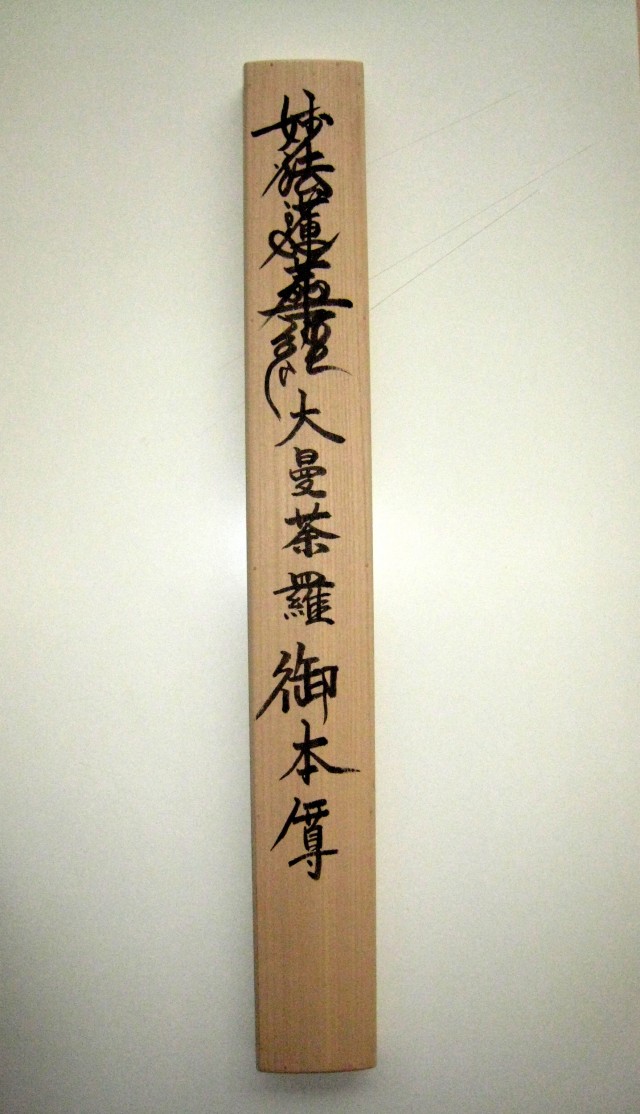 妙法蓮華経大曼荼羅御本尊